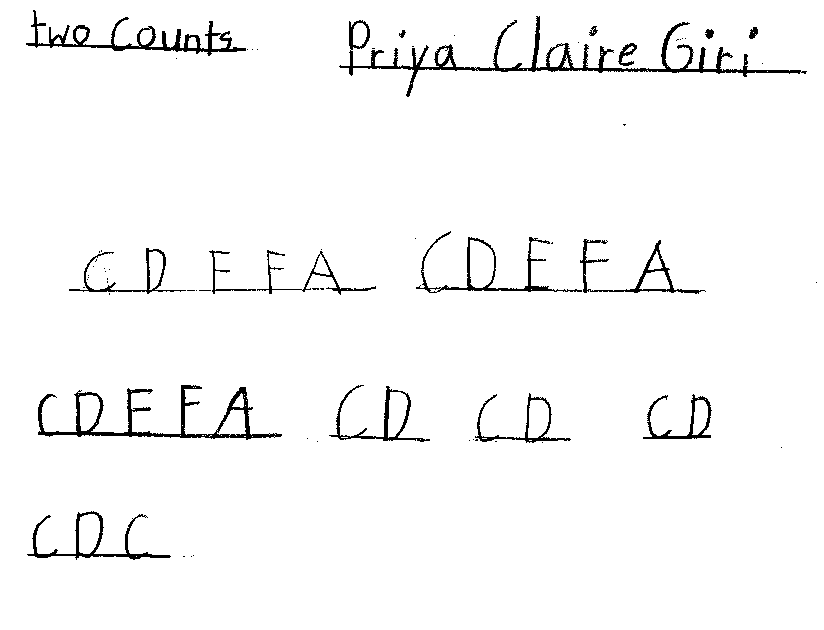 two Counts Priya Claire Giri
C D E F A C D E F A
C D E F A C D C D C D
C D C